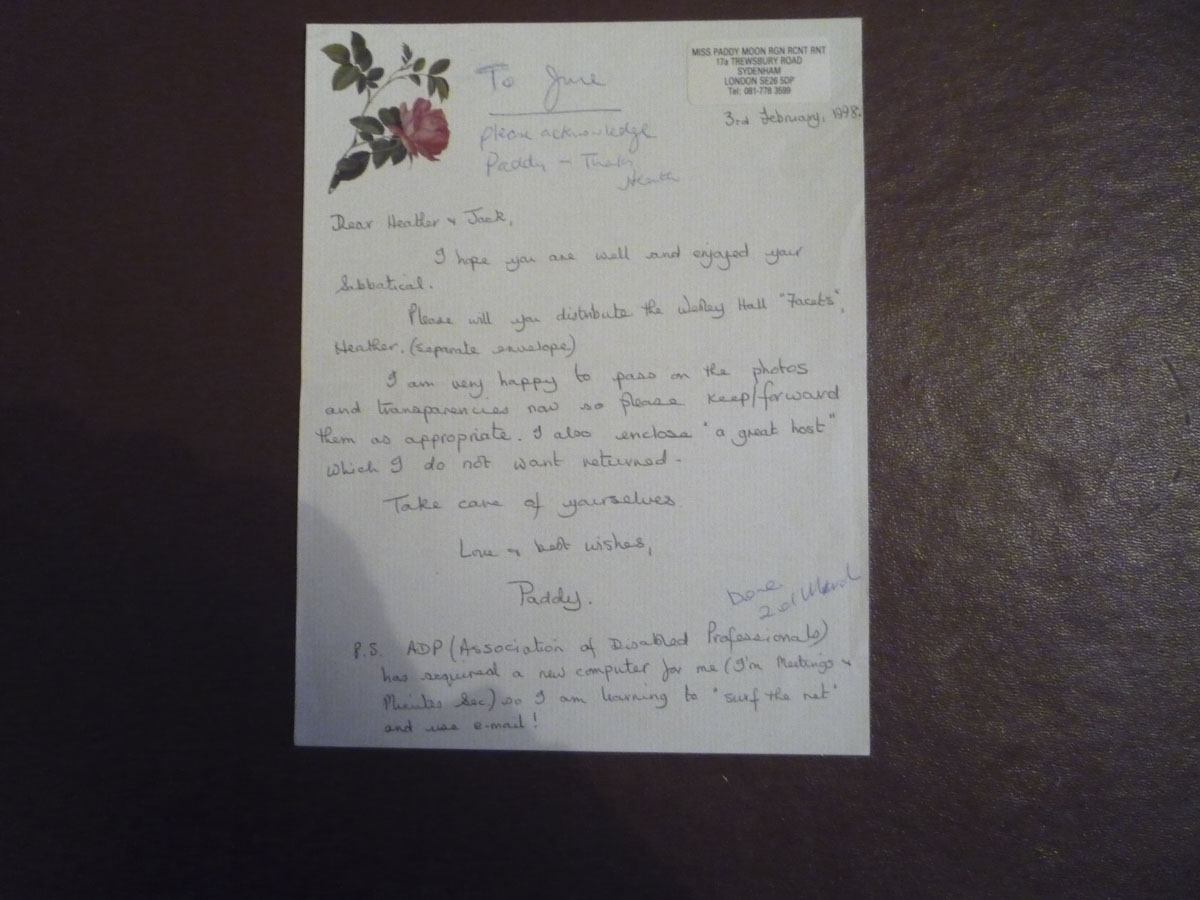 MISS PADDY MOON RGN RCNT RNT
17a TREWSBURY ROAD
SYDENHAM
LONDON SE26 5DP
Tel: 081-778 3699
3rd February, 1998.
To June
please acknowledge
Paddy – Thanks
Heather
Dear Heather & Jack,
I hope you are well and enjoyed your
Sabbatical.
Please will you distribute the Wesley Hall "Facets",
Heather. (separate envelope)
I am very happy to pass on the photos
and transparencies now so please keep/forward
them as appropriate. I also enclose "a great host"
which I do not want returned.
Take care of yourselves
Love & best wishes,
Paddy.
Done
2nd March
P.S. ADP (Association of Disabled Professionals)
has acquired a new computer for me (I'm Meetings &
Minutes Sec) so I am learning to "surf the net"
and use e-mail!